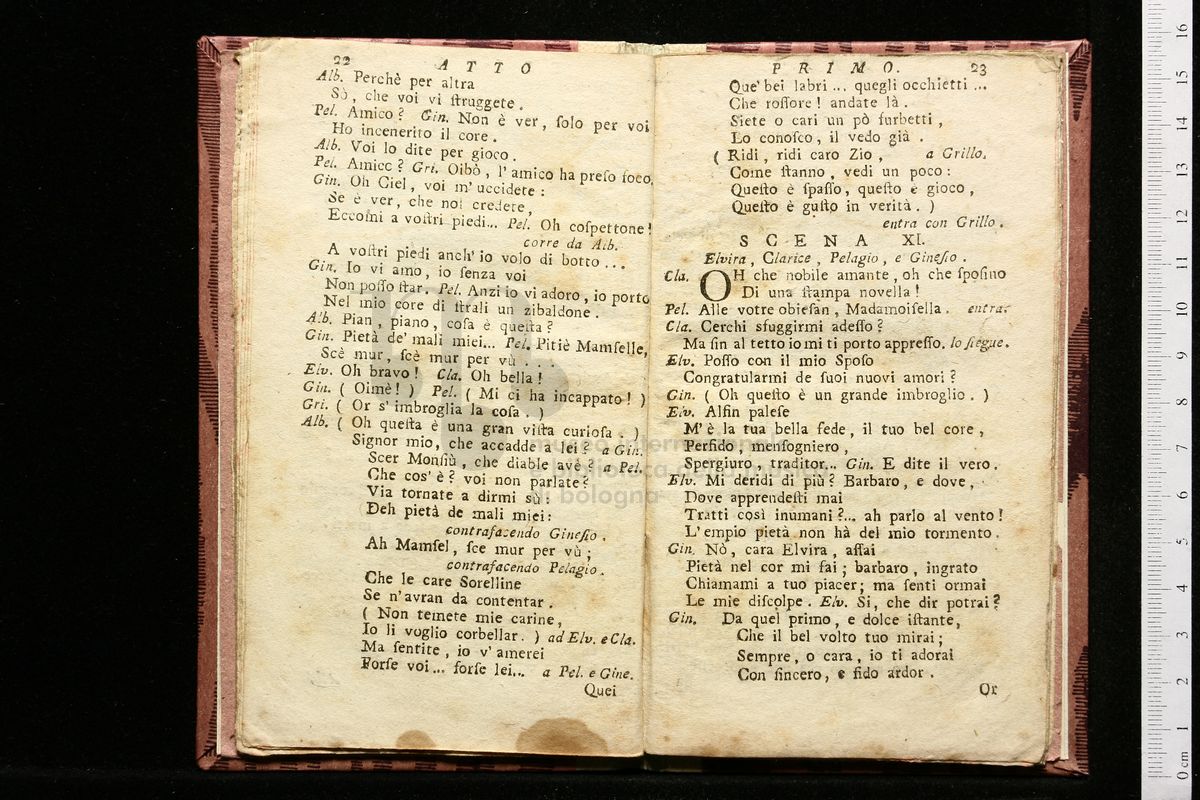 22 ATTO
Alb. Perchè per altra
Sò, che voi vi ſtruggete.
Pel. Amico? Gin. Non è ver, ſolo per voi
Ho incenerito il core.
Alb. Voi lo dite per gioco.
Pel. Amico? Gri. Oibò, l'amico ha preſo foco.
Gin. Oh Ciel, voi m'uccidete:
Se è ver, che noi credere,
Eccomi a voſtri piedi... Pel. Oh coſpettone!
corre da Alb.
A voſtri piedi anch'io volo di botto...
Gin. Io vi amo, io ſenza voi
Non poſſo ſtar. Pel. Anzi io vi adoro, io porto
Nel mio core di ſtrali un zibaldone.
Alb. Pian, piano, coſa è queſta?
Gin. Pietà de' mali miei... Pel. Pitiè Mamſelle,
Scè mur, ſcè mur per vù...
Elv. Oh bravo! Cla. Oh bella!
Gin. (Oimè!) Pel. (Mi ci ha incappato!)
Gri. (Or s'imbroglia la coſa.)
Alb. (Oh queſta è una gran viſta curioſa.)
Signor mio, che accadde a lei? a Gin.
Scer Monſiù, che diable avè? a Pel.
Che cos'è? voi non parlate?
Via tornate a dirmi sù:
Deh pietà de mali miei:
contrafacendo Gineſio.
Ah Mamſel, ſce mur per vù;
contrafacendo Pelagio.
Che le care Sorelline
Se n'avran da contentar.
(Non temete mie carine,
Io li voglio corbellar.) ad Elv. e Cla.
Ma ſentite, io v'amerei
Forſe voi... forſe lei... a Pel. e Gine.
Quei
PRIMO. 23
Que' bei labri... quegli occhietti...
Che roſſore! andate là.
Siete o cari un pò furbetti,
Lo conoſco, il vedo già.
(Ridi, ridi caro Zio, a Grillo.
Come ſtanno, vedi un poco:
Queſto è ſpaſſo, queſto è gioco,
Queſto è guſto in verità.)
entra con Grillo.
SCENA XI.
Elvira, Clarice, Pelagio, e Gineſio.
Cla. OH che nobile amante, oh che ſpoſino
Di una ſtampa novella!
Pel. Alle votre obieſan, Madamoiſella. entra.
Cla. Cerchi sfuggirmi adeſſo?
Ma fin al tetto io mi ti porto appreſſo. lo ſiegue.
Elv. Poſſo con il mio Spoſo
Congratularmi de ſuoi nuovi amori?
Gin. (Oh queſto è un grande imbroglio.)
Elv. Alfin paleſe
M'è la tua bella fede, il tuo bel core,
Perfido, menſogniero,
Spergiuro, traditor... Gin. E dite il vero.
Elv. Mi deridi di più? Barbaro, e dove,
Dove apprendeſti mai
Tratti così inumani?... ah parlo al vento!
L'empio pietà non hà del mio tormento.
Gin. Nò, cara Elvira, aſſai
Pietà nel cor mi fai; barbaro, ingrato
Chiamami a tuo piacer; ma ſenti ormai
Le mie diſcolpe. Elv. Si, che dir potrai?
Gin. Da quel primo, e dolce iſtante,
Che il bel volto tuo mirai;
Sempre, o cara, io ti adorai
Con ſincero, e fido ardor.
Or
museo internazionale
biblioteca della musica
di bologna
16
15
14
13
12
11
10
9
8
7
6
5
4
3
2
1
0 cm